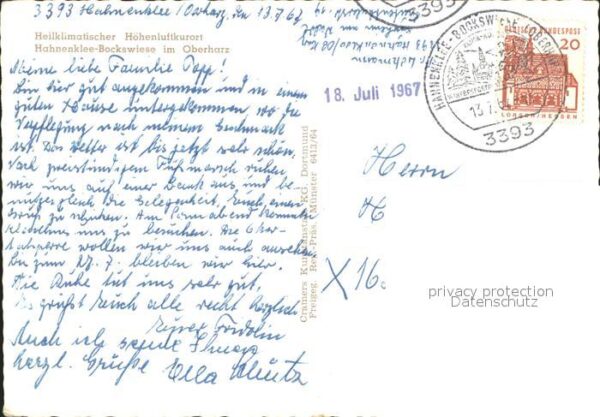 3393 Hahnenklee/Oberharz, den 13.7.67
Heilklimatischer Höhenluftkurort
Hahnenklee-Bockswiese im Oberharz
Meine liebe Familie Popp!
Bin hier gut angekommen und in einem
guten Hause untergekommen wo die
Verpflegung nach meinem Geschmack
ist. Das Wetter ist bis jetzt sehr schön.
Nach zweistündigem Fußmarsch ruhen
wir uns auf einer Bank aus und be-
nutze gleich die Gelegenheit, Euch einen
Gruß zu schicken. Am Sonnabend kommt
uns zu besuchen. Die Oker-
talsperre wollen wir uns auch ansehen.
Bis zum 27.7. bleiben wir hier.
Die Ruhe tut uns sehr gut.
Es grüßt Euch alle recht herzlich
Euer Fridolin
Auch ich sende Ihnen
herzl. Grüße Ella
Cramers Kunstanstalt KG. Dortmund
Freigeg. Reg.-Präs. Münster 6413/64
3393
18. Juli 1967
HAHNENKLEE-BOCKSWIESE (OBERHARZ)
13.7.
3393
DEUTSCHE BUNDESPOST
20
LORSCH/HESSEN
Herrn
X 16.
privacy protection
Datenschutz